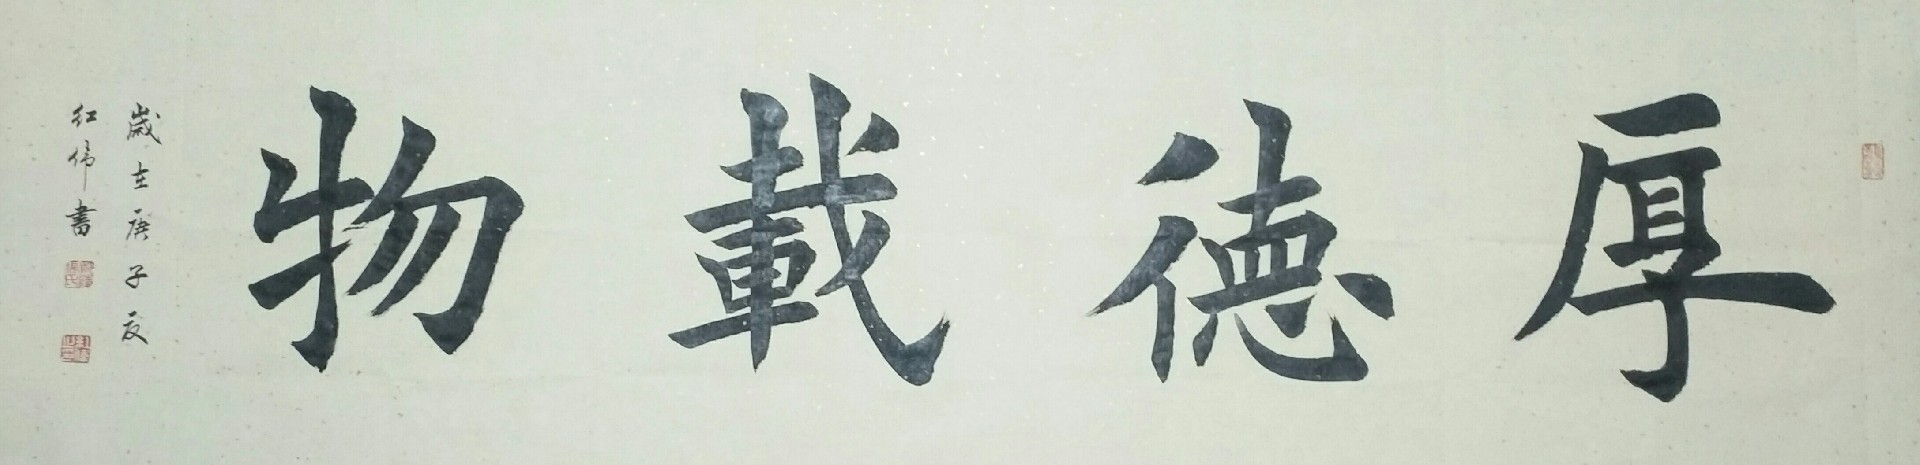 厚德載物
歲在庚子夏
红伟書